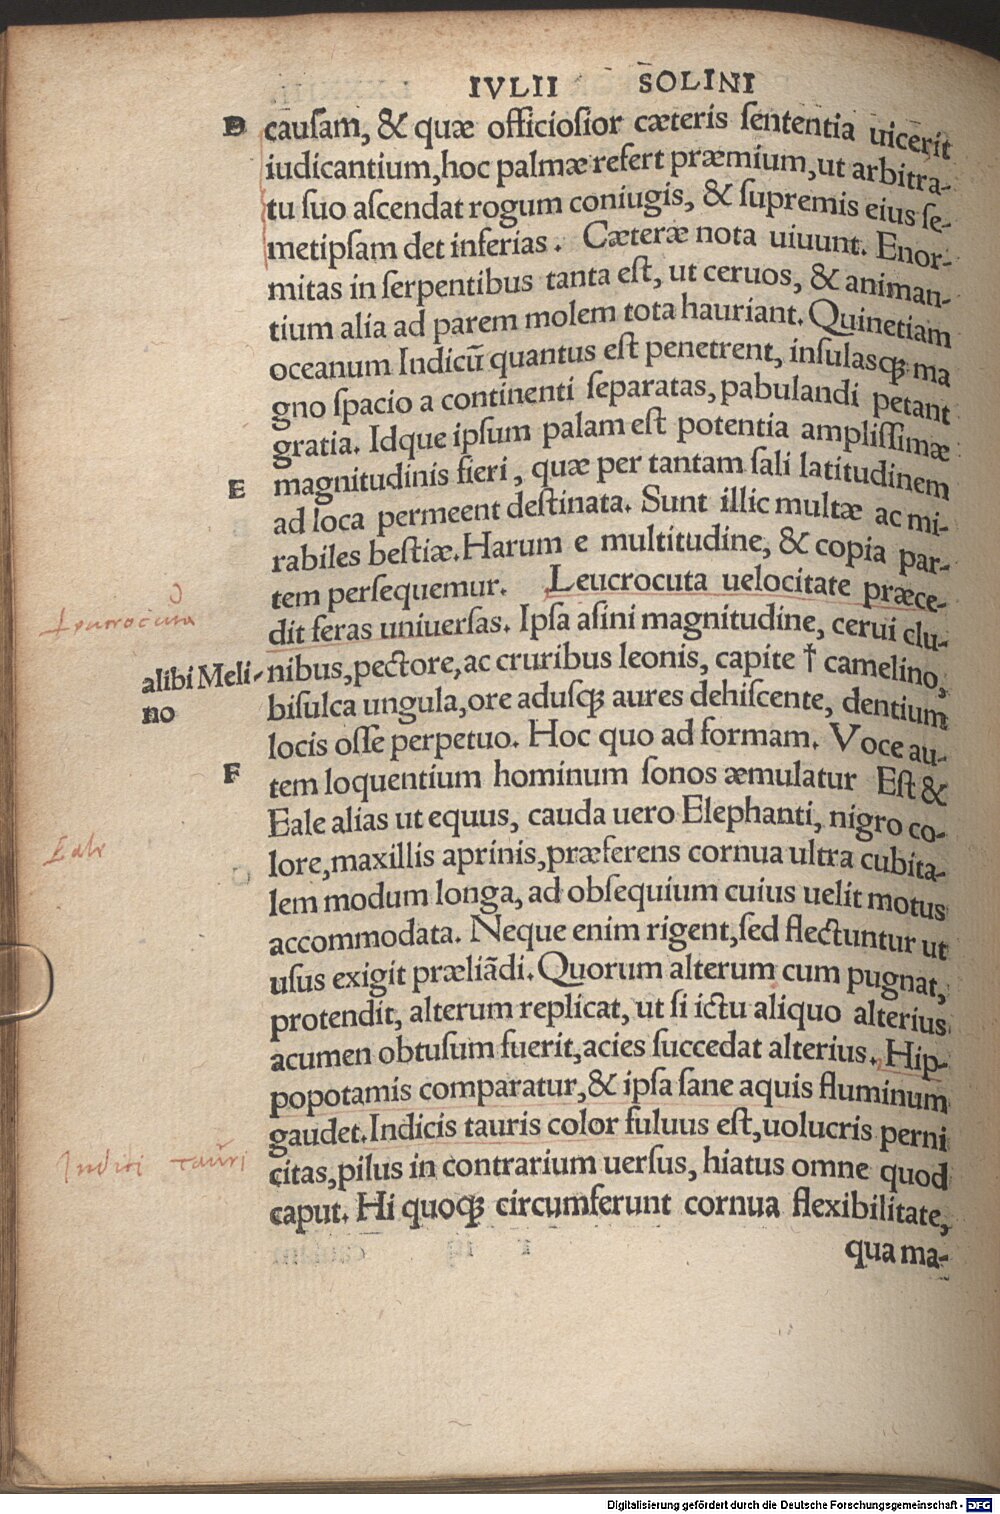 IVLII SOLINI
D causam, & quæ officiosior cæteris sententia uicerit
iudicantium, hoc palmæ refert præmium, ut arbitra-
tu suo ascendat rogum coniugis, & supremis eius se-
metipsam det inferias. Cæteræ nota uiuunt. Enor-
mitas in serpentibus tanta est, ut ceruos, & animan-
tium alia ad parem molem tota hauriant. Quinetiam
oceanum Indicū quantus est penetrent, insulasq; ma
gno spacio a continenti separatas, pabulandi petant
gratia. Idque ipsum palam est potentia amplissimæ
E magnitudinis fieri, quæ per tantam sali latitudinem
ad loca permeent destinata. Sunt illic multæ ac mi-
rabiles bestiæ. Harum e multitudine, & copia par-
tem persequemur. Leucrocuta uelocitate præce-
Leucrocuta
dit feras uniuersas. Ipsa asini magnitudine, cerui clu-
alibi Meli- nibus, pectore, ac cruribus leonis, capite † camelino,
no bisulca ungula, ore adusq; aures dehiscente, dentium
locis osse perpetuo. Hoc quo ad formam. Voce au-
F tem loquentium hominum sonos æmulatur Est &
Eale alias ut equus, cauda uero Elephanti, nigro co-
Eale
lore, maxillis aprinis, præferens cornua ultra cubita-
lem modum longa, ad obsequium cuius uelit motus
accommodata. Neque enim rigent, sed flectuntur ut
usus exigit præliādi. Quorum alterum cum pugnat,
protendit, alterum replicat, ut si ictu aliquo alterius
acumen obtusum fuerit, acies succedat alterius. Hip-
popotamis comparatur, & ipsa sane aquis fluminum
gaudet. Indicis tauris color fuluus est, uolucris perni
Indici tauri
citas, pilus in contrarium uersus, hiatus omne quod
caput. Hi quoq; circumferunt cornua flexibilitate,
qua ma-
Digitalisierung gefördert durch die Deutsche Forschungsgemeinschaft - DFG